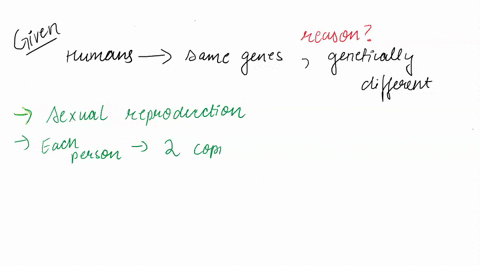 Given
reason?
Humans → same genes , genetically
different
→ Sexual reproduction
→ Each
person → 2 copi